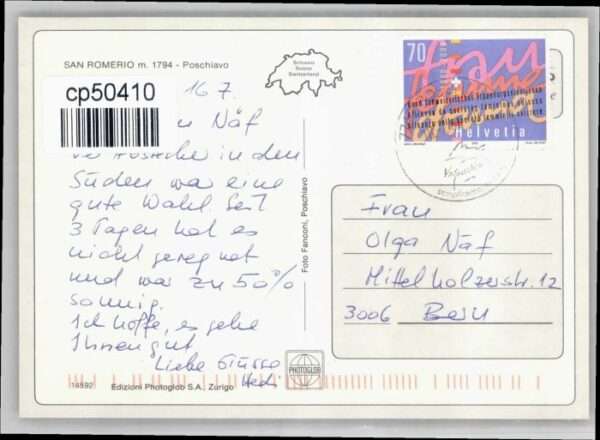 SAN ROMERIO m. 1794 - Poschiavo
cp50410
16.7.
Näf
in den
Süden war eine
gute Wahl. Seit
3 Tagen hat es
nicht geregnet
und war zu 50%
sonnig.
Ich hoffe, es gehe
Ihnen gut
Liebe Grüsse
Hedi
Schweiz
Suisse
Switzerland
Foto Fanconi, Poschiavo
PHOTOGLOB
14892 Edizioni Photoglob S.A., Zurigo
70
Helvetia
Frau
Olga Näf
Mittelholzerstr. 12
3006 Bern